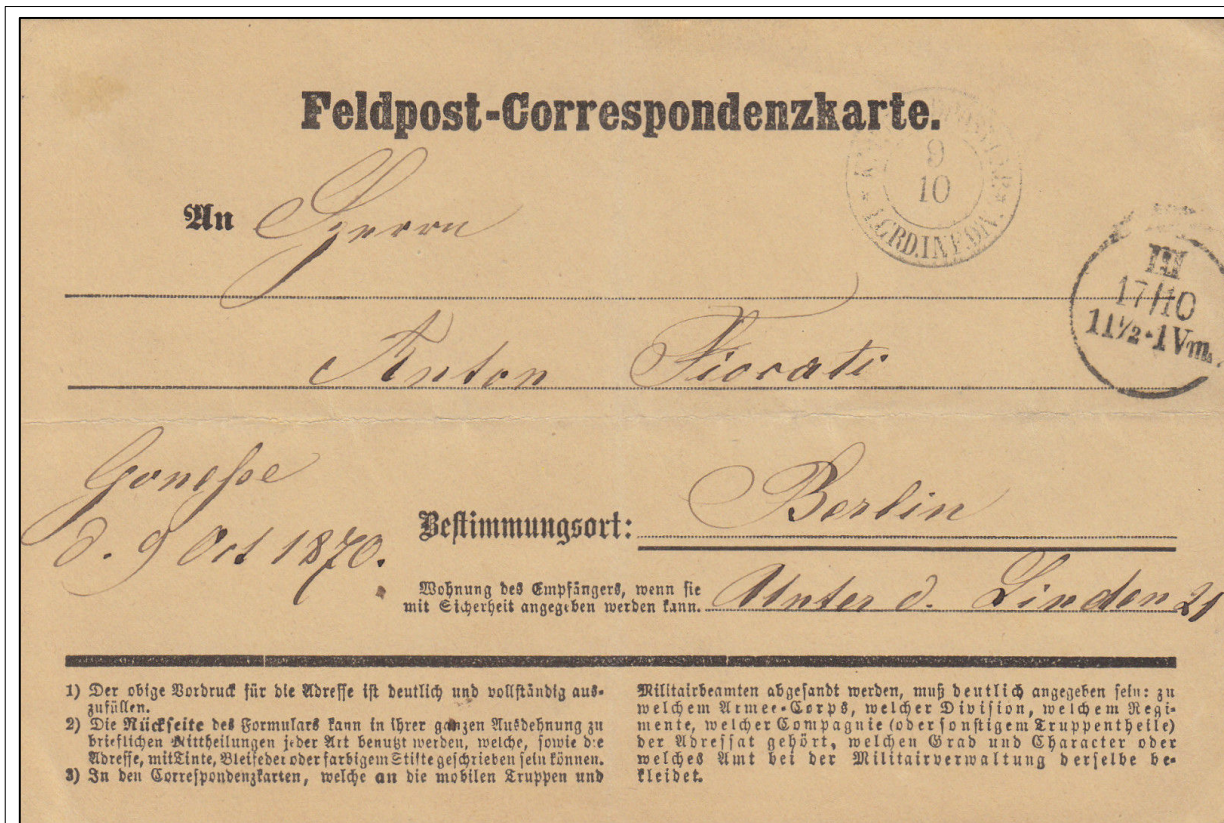 Feldpost-Correspondenzkarte.
9
10
1.GRD.INF.DN.
An Herrn
III
17/10
11½-1Vm.
Anton Fiorati
Gonesse
d. 9 Oct 1870.
Bestimmungsort: Berlin
Wohnung des Empfängers, wenn sie
mit Sicherheit angegeben werden kann. Unter d. Linden 21
1) Der obige Vordruck für die Adresse ist deutlich und vollständig aus-
zufüllen.
2) Die Rückseite des Formulars kann in ihrer ganzen Ausdehnung zu
brieflichen Mittheilungen jeder Art benutzt werden, welche, sowie die
Adresse, mit Tinte, Bleifeder oder farbigem Stifte geschrieben sein können.
3) In den Correspondenzkarten, welche an die mobilen Truppen und
Militairbeamten abgesandt werden, muß deutlich angegeben sein: zu
welchem Armee-Corps, welcher Division, welchem Regi-
mente, welcher Compagnie (oder sonstigem Truppentheile)
der Adressat gehört, welchen Grad und Character oder
welches Amt bei der Militairverwaltung derselbe be-
kleidet.